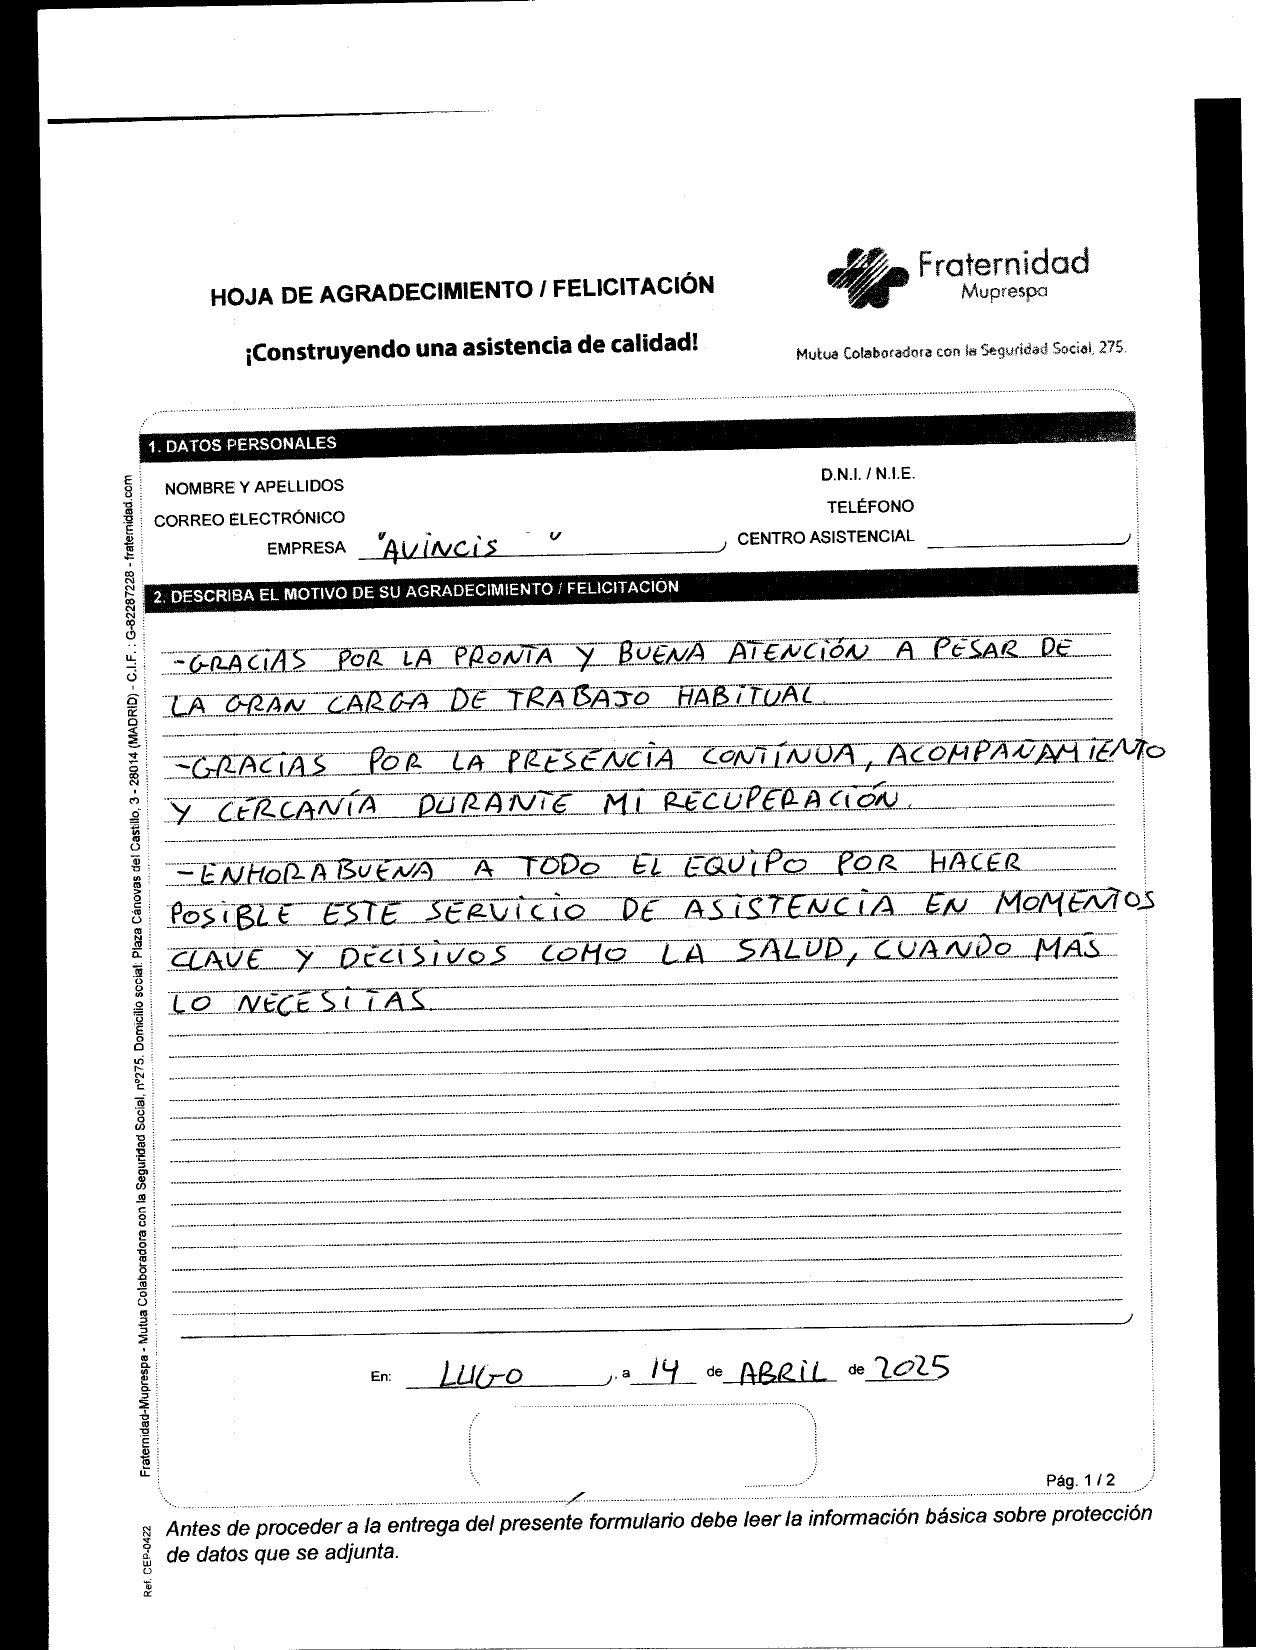 HOJA DE AGRADECIMIENTO / FELICITACIÓN
¡Construyendo una asistencia de calidad!
Fraternidad
Muprespa
Mutua Colaboradora con la Seguridad Social, 275.
1. DATOS PERSONALES
NOMBRE Y APELLIDOS
D.N.I. / N.I.E.
CORREO ELECTRÓNICO
TELÉFONO
EMPRESA "AVINCIS "
CENTRO ASISTENCIAL
2. DESCRIBA EL MOTIVO DE SU AGRADECIMIENTO / FELICITACIÓN
-GRACIAS POR LA PRONTA Y BUENA ATENCIÓN A PESAR DE
LA GRAN CARGA DE TRABAJO HABITUAL.
-GRACIAS POR LA PRESENCIA CONTÍNUA, ACOMPAÑAMIENTO
Y CERCANÍA DURANTE MI RECUPERACIÓN.
-ENHORABUENA A TODO EL EQUIPO POR HACER
POSIBLE ESTE SERVICIO DE ASISTENCIA EN MOMENTOS
CLAVE Y DECISIVOS COMO LA SALUD, CUANDO MAS
LO NECESITAS.
En: LUGO , a 14 de ABRIL de 2025
Pág. 1 / 2
Antes de proceder a la entrega del presente formulario debe leer la información básica sobre protección
de datos que se adjunta.
Fraternidad-Muprespa - Mutua Colaboradora con la Seguridad Social, nº275. Domicilio social: Plaza Cánovas del Castillo, 3 - 28014 (MADRID) - C.I.F. : G-82287228 - fraternidad.com
Ref. CEP-0422